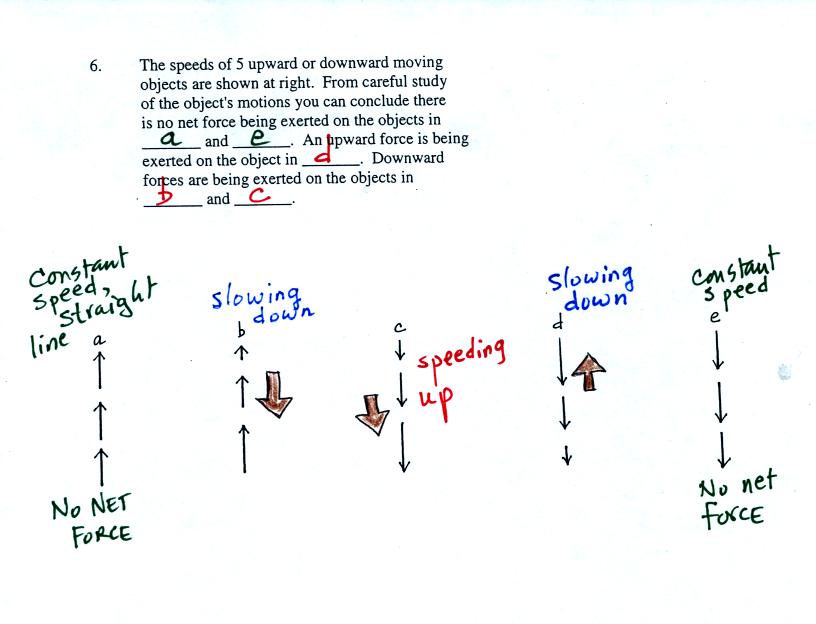 6. The speeds of 5 upward or downward moving
objects are shown at right. From careful study
of the object's motions you can conclude there
is no net force being exerted on the objects in
a and e. An upward force is being
exerted on the object in d. Downward
forces are being exerted on the objects in
b and c.
Constant
speed,
straight
line
a
NO NET
FORCE
slowing
down
b
c
speeding
up
slowing
down
d
constant
speed
e
No net
force